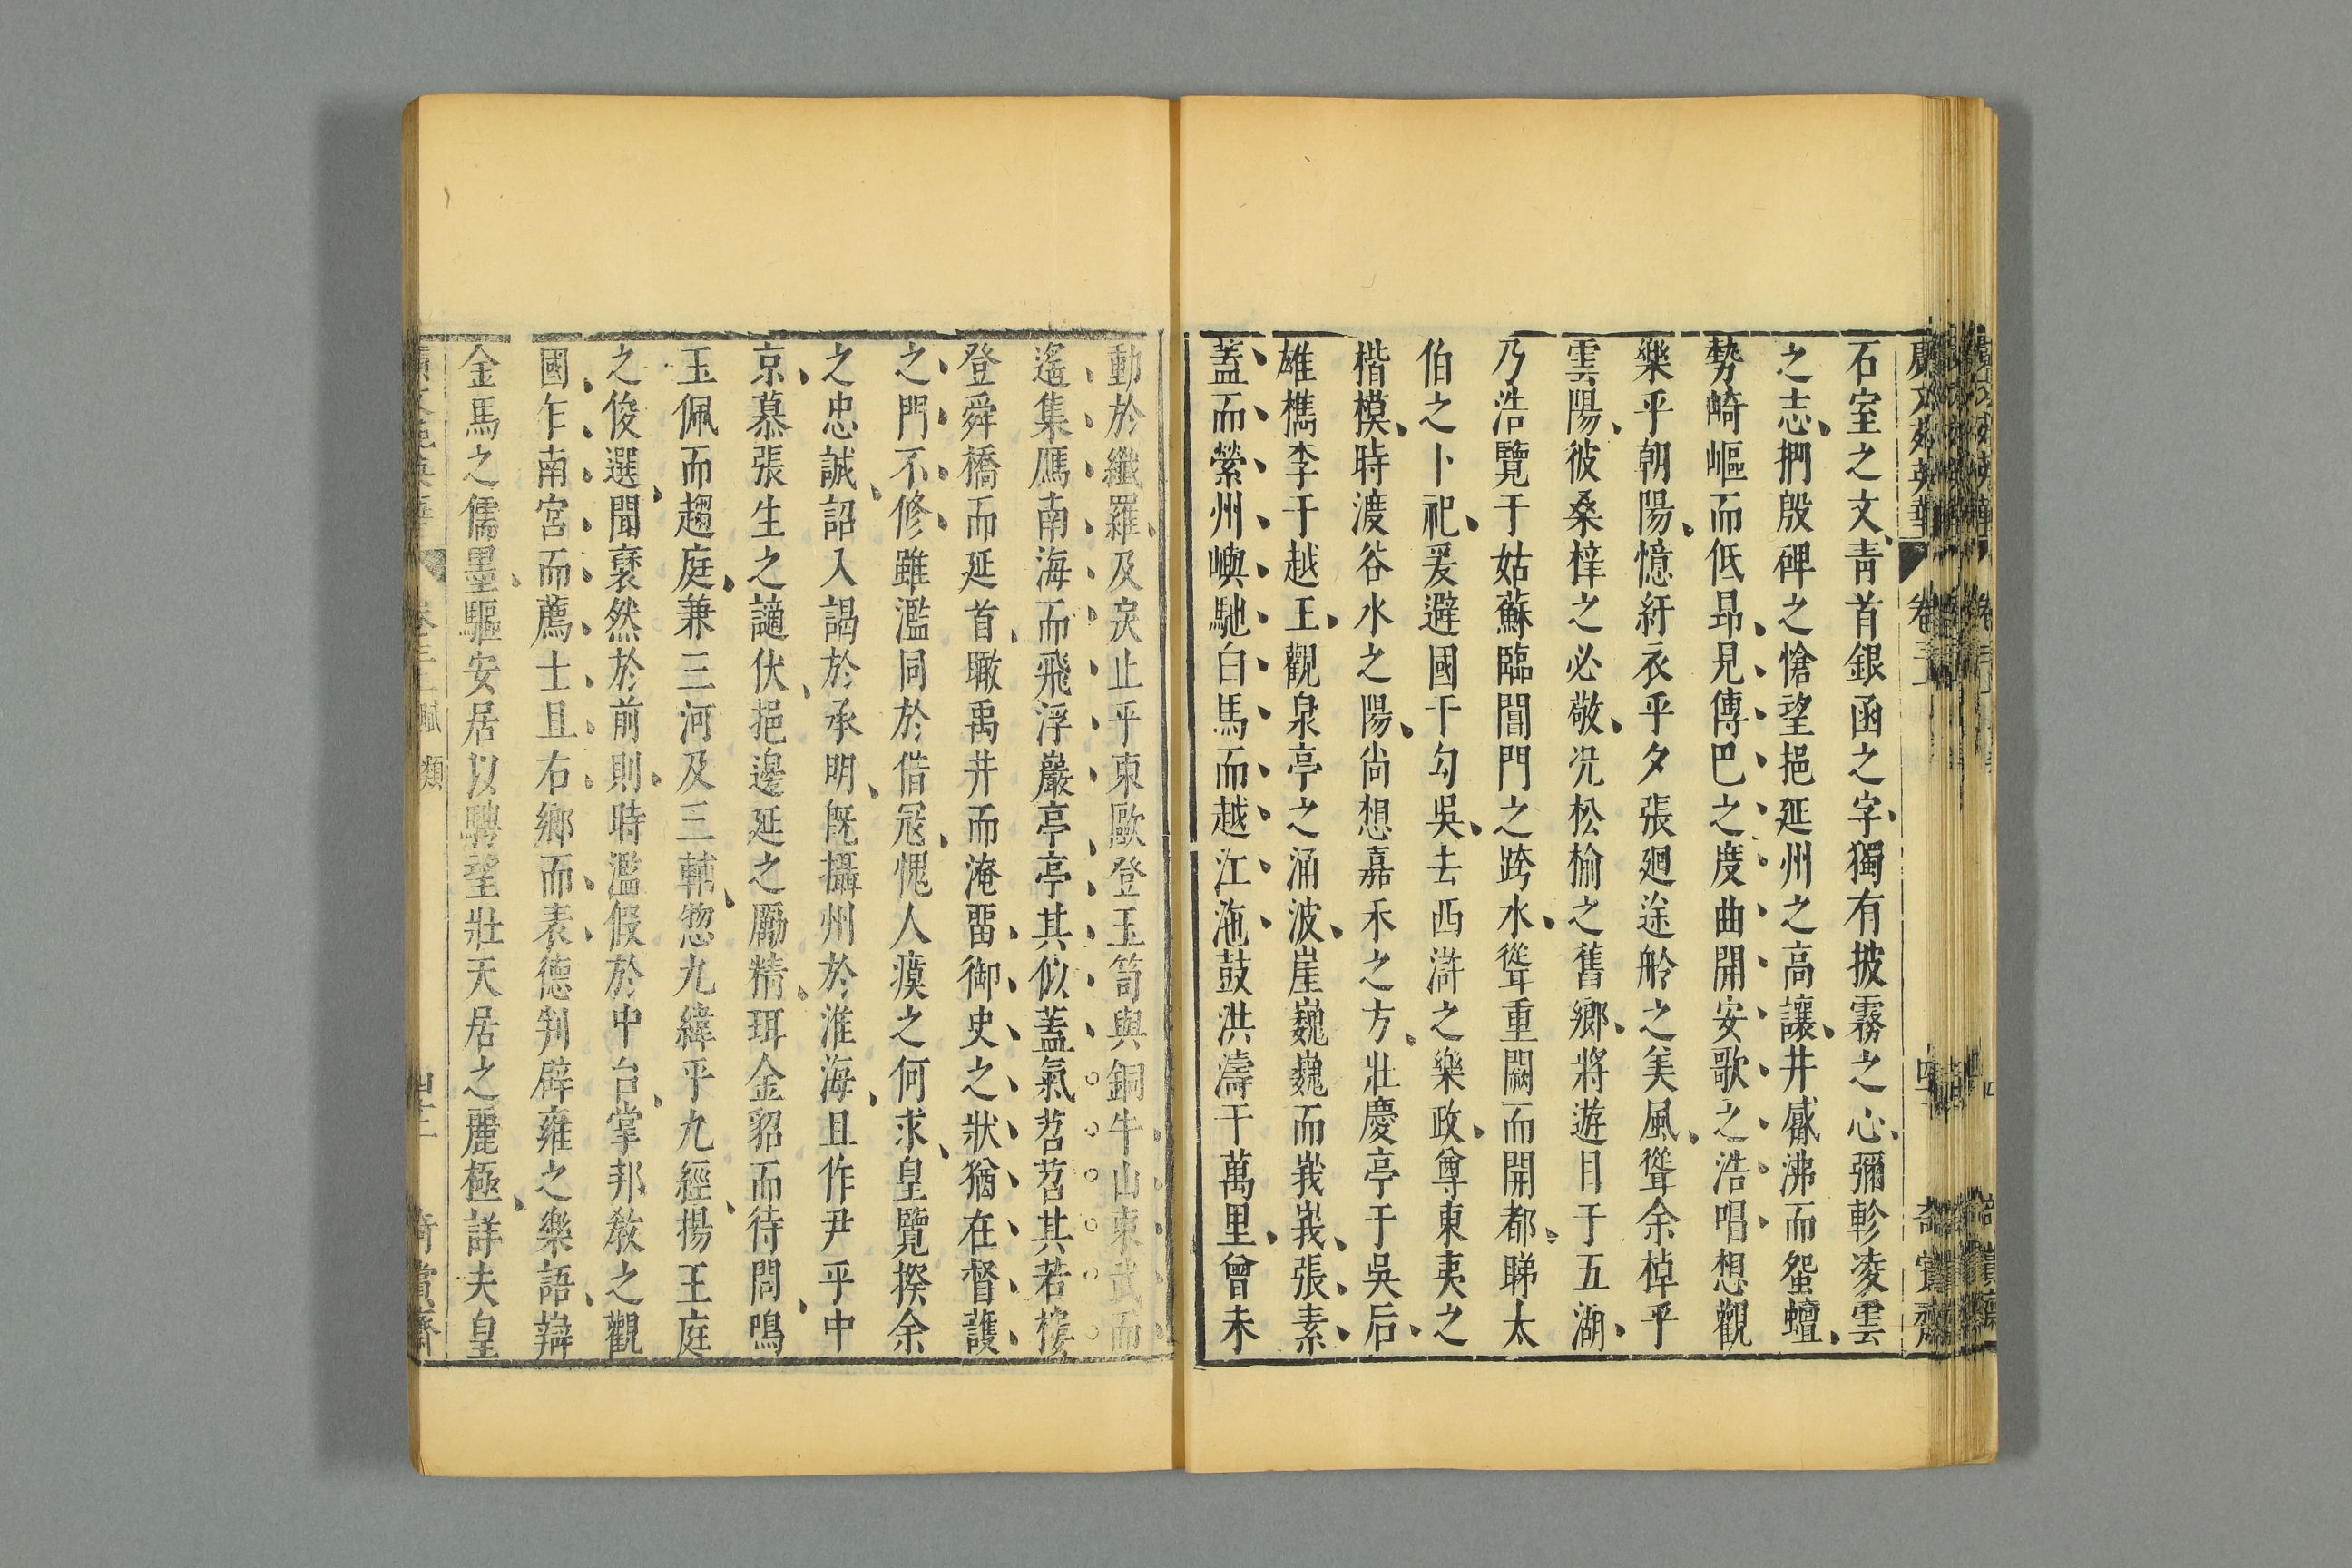 石室之文青首銀函之字獨有披霧之心彌軫凌雲
之志捫殷碑之愴望挹延州之高讓井䖍沸而蜿蟺
勢崎嶇而低昂見傳巴之度曲開安歌之浩唱想觀
樂乎朝陽憶紵衣乎夕張廻途舲之美風聳余棹乎
雲陽彼桑梓之必敬况松楡之舊鄉將遊目于五湖
乃浩覽于姑蘇臨閶門之跨水聳重闕而開都睇太
伯之卜祀爰避國于勾吳去西滸之樂政尊東夷之
楷模時渡谷水之陽尚想嘉禾之方壯慶亭于吳后
雄檇李于越王觀泉亭之涌波崖巍巍而峩峩張素
蓋而縈州嶼馳白馬而越江沲鼓洪濤于萬里曾未
動於纖羅及戾止乎東歐登玉笥與銅牛山東武而
遙集鴈南海而飛浮巖亭亭其似蓋氣苕苕其若樓
登舜橋而延首瞰禹井而淹畱御史之狀猶在督護
之門不修雖濫同於借冦愧人瘼之何求皇覽揆余
之忠誠詔入謁於承明旣攝州於淮海且作尹乎中
京慕張生之讁伏挹邊延之勵精珥金貂而待問鳴
玉佩而趨庭兼三河及三輔惣九緯乎九經揚王庭
之俊選聞裦然於前則時濫假於中台掌邦敎之觀
國乍南宮而薦士且右鄉而表德判辟雍之樂語辯
金馬之儒墨驅安居以騁望壯天居之麗極詳夫皇